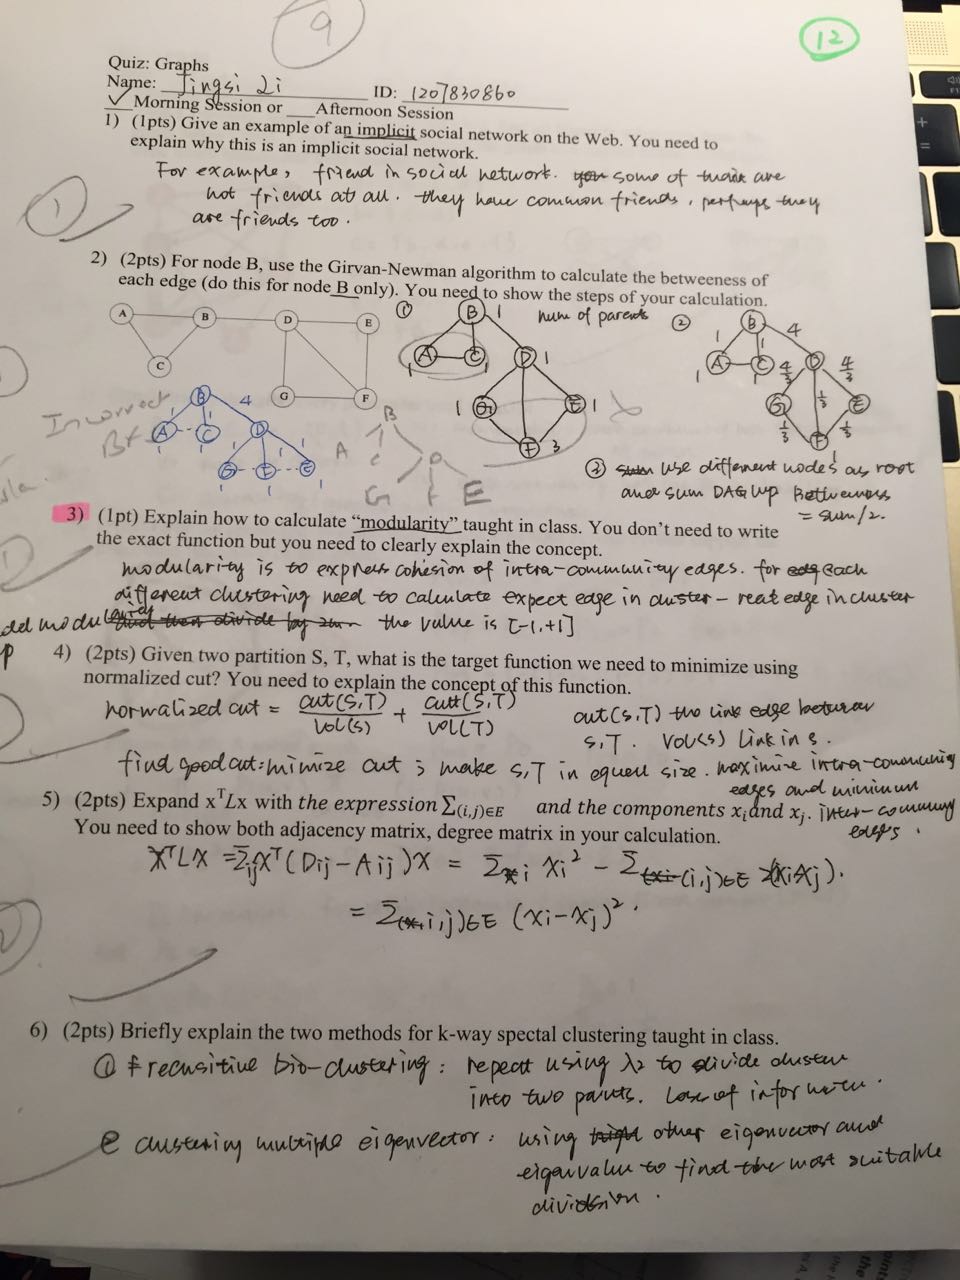 9
12
Quiz: Graphs
Name: Jingsi Li ID: 1207830860
✓ Morning Session or ___ Afternoon Session
1) (1pts) Give an example of an implicit social network on the Web. You need to
explain why this is an implicit social network.
For example, friend in social network. some of them are
not friends at all. they have common friends, perhaps they
are friends too.
1
2) (2pts) For node B, use the Girvan-Newman algorithm to calculate the betweeness of
each edge (do this for node B only). You need to show the steps of your calculation.
A B D E C G F
① B 1 num of parents
A C D 1
1 1
1 G E 1
F 3
② B 4
1 1
A C D
1 1 4/3 4/3
G 1/3 E
1/3 F 1/3
1
Incorrect
B 4
1 1
A C D
1 1 1 1 1
G F E
1 1 1
B
A C D
G F E
③ use different nodes as root
and sum DAG up Betweenness
= sum/2.
3) (1pt) Explain how to calculate "modularity" taught in class. You don't need to write
the exact function but you need to clearly explain the concept.
modularity is to express cohesion of intra-community edges. for each
different clustering need to calculate expect edge in cluster – real edge in cluster
the value is [-1,+1]
4) (2pts) Given two partition S, T, what is the target function we need to minimize using
normalized cut? You need to explain the concept of this function.
normalized cut = cut(S,T)/vol(S) + cut(S,T)/vol(T) cut(S,T) the link edge between
S,T. vol(S) link in S.
find good cut: mimize cut; make S,T in equal size. maximize intra-community
edges and minimum
inter-community
edges.
5) (2pts) Expand xᵀLx with the expression Σ(i,j)∈E and the components xᵢ and xⱼ.
You need to show both adjacency matrix, degree matrix in your calculation.
XᵀLX = Σij Xᵀ(Dij – Aij)X = Σi Xi² – Σ(i,j)∈E 2(XiXj).
= Σ(i,j)∈E (xi–xj)².
6) (2pts) Briefly explain the two methods for k-way spectal clustering taught in class.
① recursitive bio-clustering: repeat using λ2 to divide cluster
into two parts. Lose of information.
② clustering multiple eigenvector: using other eigenvector and
eigenvalue to find the most suitable
dividsion.